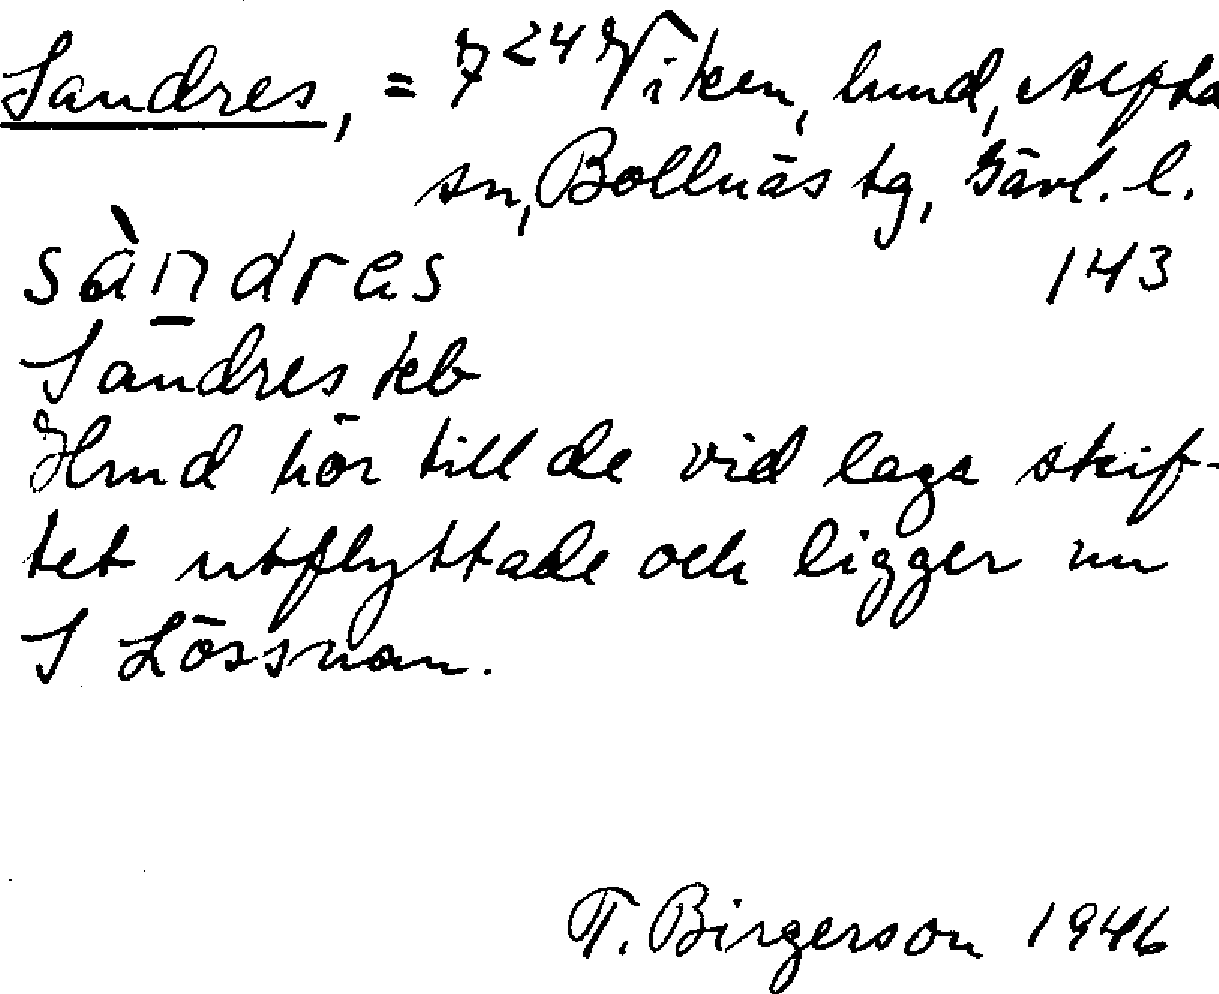 Sandres, = 7²⁴ Viken, hmd, Alfta
sn, Bollnäs tg, Gävl. l.
sàndres 143
Sandres kb
Hmd hör till de vid laga skif-
tet utflyttade och ligger nu
I Lössnan.
T. Birgerson 1946